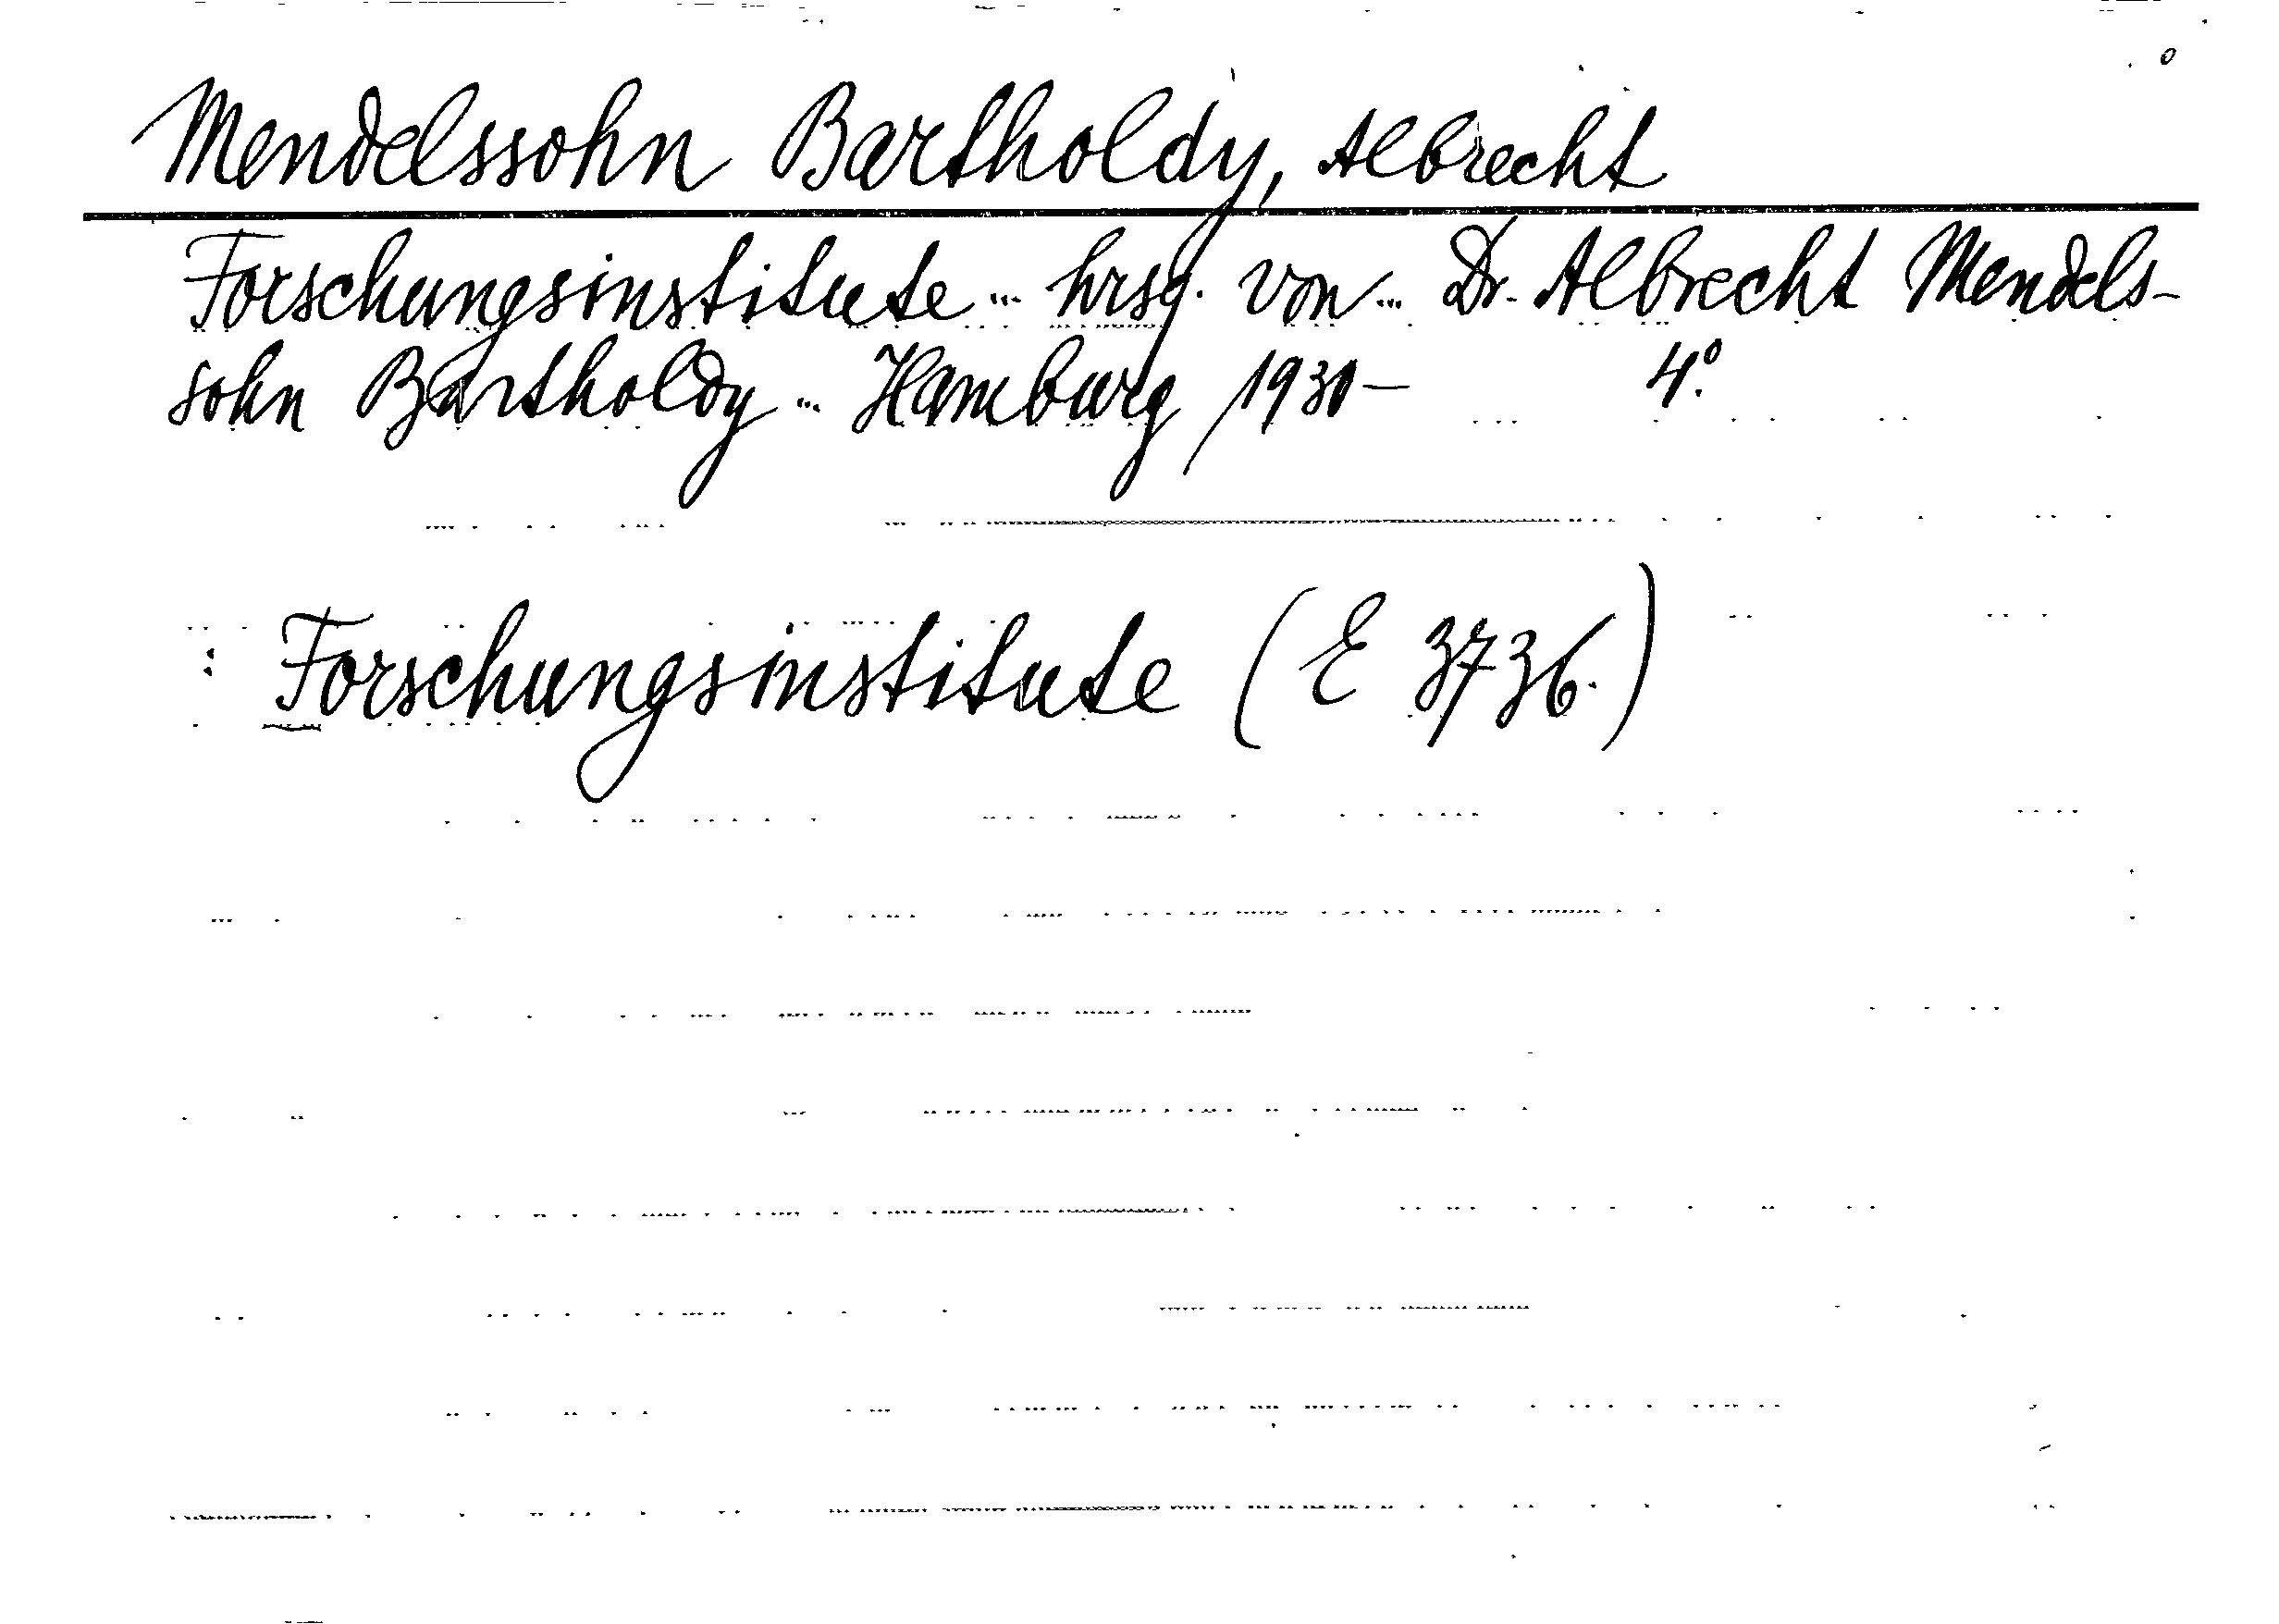 Mendelssohn Bartholdy, Albrecht
Forschungsinstitute ... hrsg. von ... Dr. Albrecht Mendels-
sohn Bartholdy ... Hamburg 1930- 4.º
: Forschungsinstitute (E 3736.)